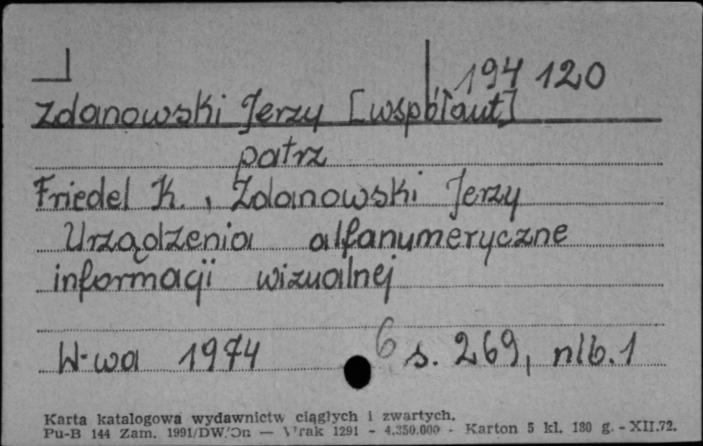 194 120
Zdanowski Jerzy [współaut]
patrz
Friedel K., Zdanowski Jerzy
Urządzenia alfanumeryczne
informacji wizualnej
W-wa 1974 6 s. 269, nlb. 1
Karta katalogowa wydawnictw ciągłych i zwartych.
Pu-B 144 Zam. 1991/DW. — 1291 - 4.350.000 - Karton 5 kl. 180 g. - XII.72.